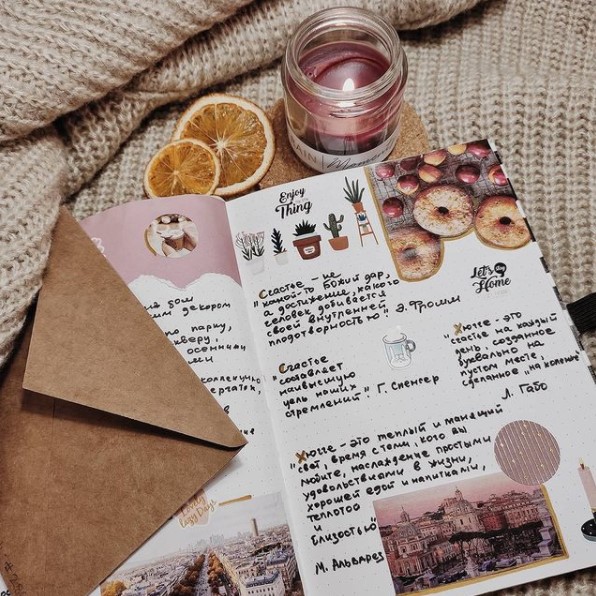 Enjoy
Thing
Let's
Home
Счастье - не
"какой-то Божий дар,
а достижение, какого
человек добивается
своей внутренней
плодотворностью" Э. Фромм
"Счастье
составляет
наивысшую
цель наших
стремлений". Г. Спенсер
"Хюгге - это
счастье на каждый
день, созданное
буквально на
пустом месте,
сделанное "на коленке"
Л. Габо
"Хюгге - это теплый и манящий
свет, время с теми, кого вы
любите, наслаждение простыми
удовольствиями в жизни,
хорошей едой и напитками,
теплотой
и
близостью"
М. Альварез
декором
парку,
скверу,
осенними
Cozy Days